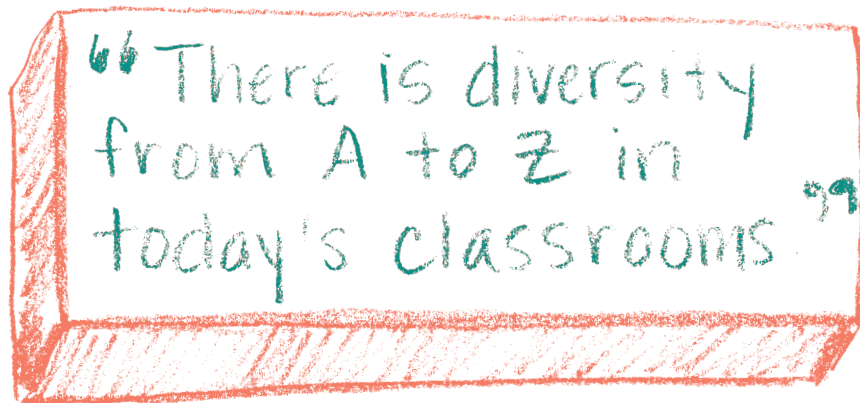 “There is diversity
from A to Z in
today's classrooms”